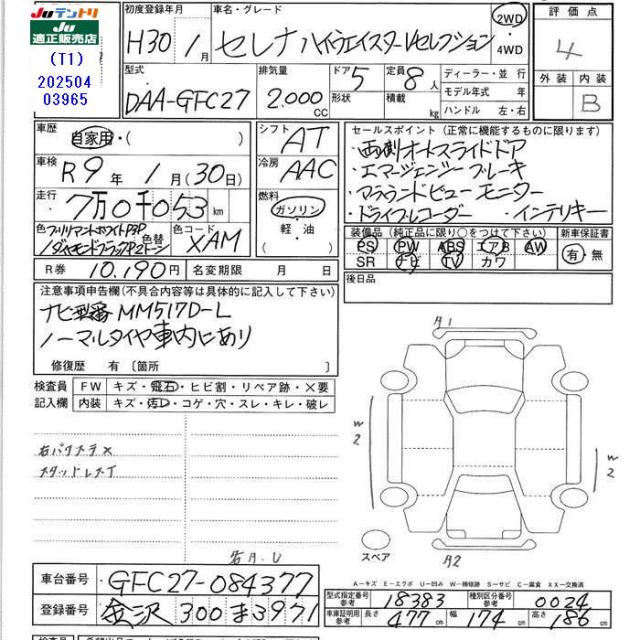 JUテントリ
JU
適正販売店
(T1)
202504
03965
初度登録年月
H30年1月
車名・グレード
セレナ ハイウェイスターVセレクション
2WD
・
4WD
評価点
4
外装 内装
B
型式
DAA-GFC27
排気量
2,000
CC
ドア
5
形状
定員
8人
積載
kg
ディーラー・並行
モデル年式 年
ハンドル 左・右
車歴
自家用・( )
シフト
AT
車検
R9年1月(30日)
冷房
AAC
走行
7万0千053km
燃料
ガソリン
・
軽油
( )
色
ブリリアントホワイトP3P
/ダイヤモンドブラックP2トーン
色替
色コード
XAM
R券 10,190円
名変期限 月 日
セールスポイント (正常に機能するものに限ります)
・両側オートスライドドア
・エマージェンシーブレーキ
・アラウンドビューモニター
・ドライブレコーダー ・インテリキー
装備品 (純正品に限り○をつけて下さい)
新車保証書
PS PW ABS エアB AW
SR ナビ TV カワ
有・無
後日品
注意事項申告欄(不具合内容等は具体的に記入して下さい)
ナビ型番 MM517D-L
ノーマルタイヤ車内にあり
修復歴 有〔箇所
検査員
記入欄
FW キズ・飛石・ヒビ割・リペア跡・×要
内装 キズ・汚れ・コゲ・穴・スレ・キレ・破レ
スタッドレス
A1
W2
W2
A2
スペア
A-キズ E-エクボ U-凹み W-補修跡 S-サビ C-腐食 XX-交換済
車台番号 GFC27-084377
登録番号 金沢 300 ま 3971
型式指定番号
参考
18383
種別区分番号
参考
0024
車両証明用
参考
長さ
477
cm
幅
174
cm
高さ
186
cm